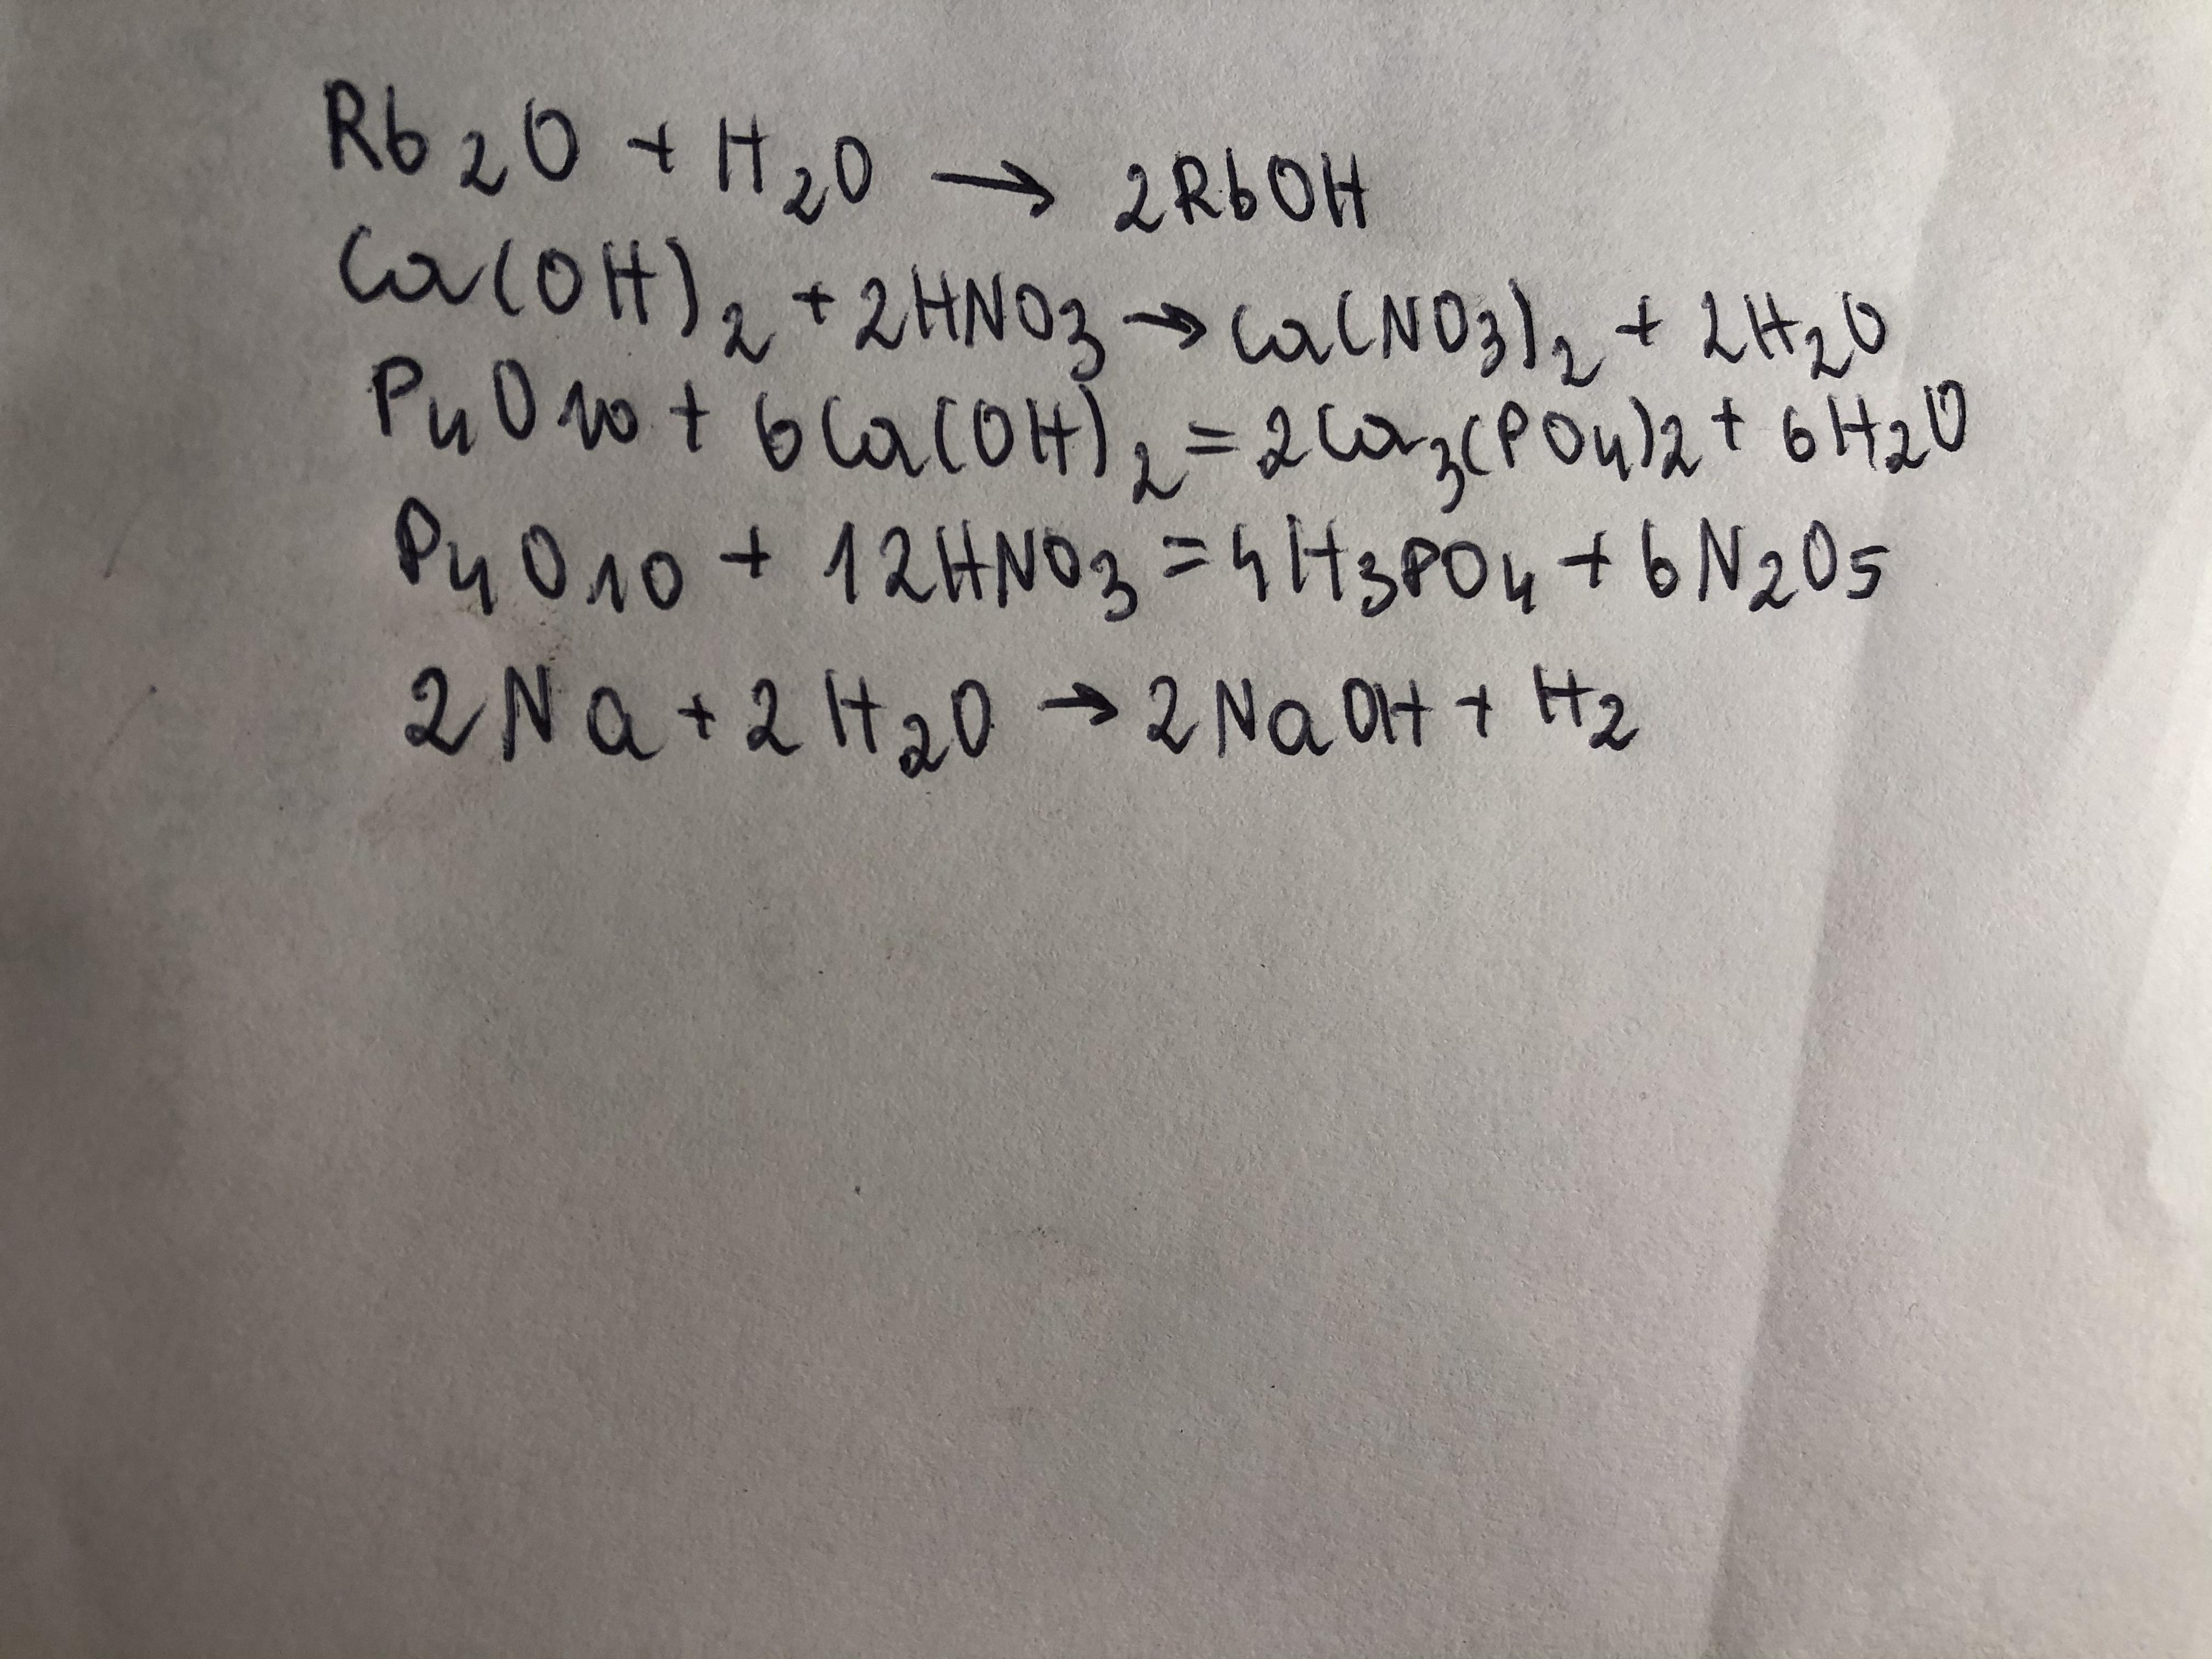 Rb₂O + H₂O → 2RbOH
Ca(OH)₂ + 2HNO₃ → Ca(NO₃)₂ + 2H₂O
P₄O₁₀ + 6Ca(OH)₂ = 2Ca₃(PO₄)₂ + 6H₂O
P₄O₁₀ + 12HNO₃ = 4H₃PO₄ + 6N₂O₅
2Na + 2H₂O → 2NaOH + H₂